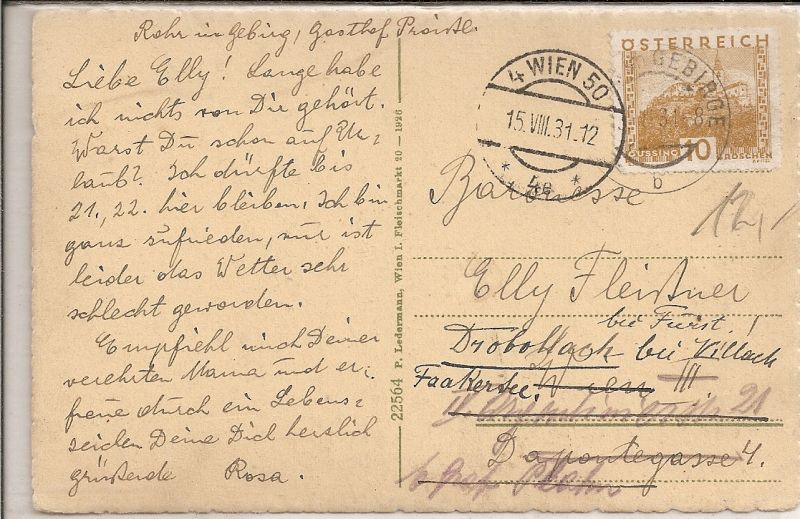 Rohr im Gebirg, Gasthof
Liebe Elly! Lange habe
ich nichts von Dir gehört.
Warst Du schon auf Ur-
laub? Ich dürfte bis
21., 22. hier bleiben. Ich bin
ganz zufrieden, nur ist
leider das Wetter sehr
schlecht geworden.
Empfiehl mich Deiner
verehrten Mama und er-
freue durch ein Lebens-
zeichen Deine Dich herzlich
grüßende Rosa.
22564 P. Ledermann, Wien I. Fleischmarkt 20 — 1926
4 WIEN 50
15.VIII.31.12
* 4e *
ÖSTERREICH
GEBIRGE
31 8
b
GÜSSING 10 GROSCHEN
Baronesse
Elly Fleißner
bei Fürst!
Drobollach bei Villach
Faakersee. Wien III
21
Daponte­gasse 4.